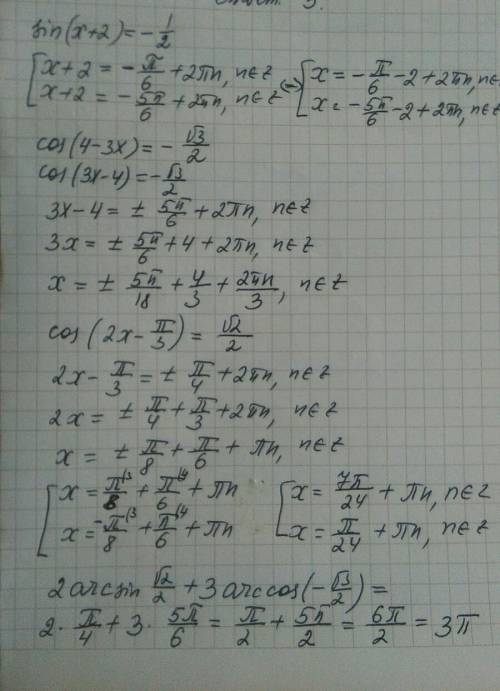 sin(x+2)=-1/2
[x+2 = -π/6 + 2πn, n∈Z
x+2 = -5π/6 + 2πn, n∈Z
⇔ [x = -π/6 - 2 + 2πn, n∈
x = -5π/6 - 2 + 2πn, n∈Z
cos(4-3x) = -√3/2
cos(3x-4) = -√3/2
3x-4 = ± 5π/6 + 2πn, n∈Z
3x = ± 5π/6 + 4 + 2πn, n∈Z
x = ± 5π/18 + 4/3 + 2πn/3, n∈Z
cos(2x - π/3) = √2/2
2x - π/3 = ± π/4 + 2πn, n∈Z
2x = ± π/4 + π/3 + 2πn, n∈Z
x = ± π/8 + π/6 + πn, n∈Z
[x = π/8 \3 + π/6 \4 + πn
x = -π/8 \3 + π/6 \4 + πn
[x = 7π/24 + πn, n∈Z
x = π/24 + πn, n∈Z
2arcsin √2/2 + 3arccos(-√3/2) =
2 · π/4 + 3 · 5π/6 = π/2 + 5π/2 = 6π/2 = 3π